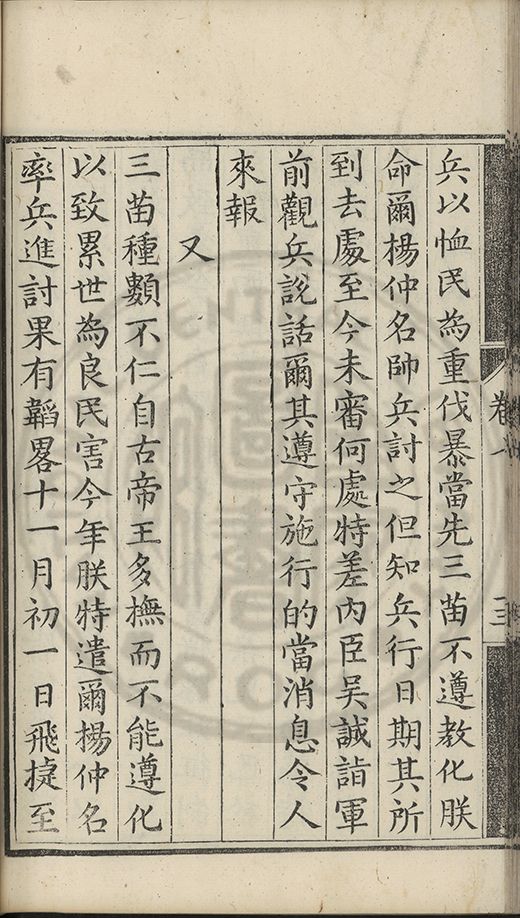 兵以恤民為重伐暴當先三苗不遵教化朕
命爾楊仲名帥兵討之但知兵行日期其所
到去處至今未審何處特差內臣吳誠詣軍
前觀兵說話爾其遵守施行的當消息令人
來報
又
三苗種數不仁自古帝王多撫而不能遵化
以致累世為良民害今年朕特遣爾楊仲名
率兵進討果有韜畧十一月初一日飛捷至